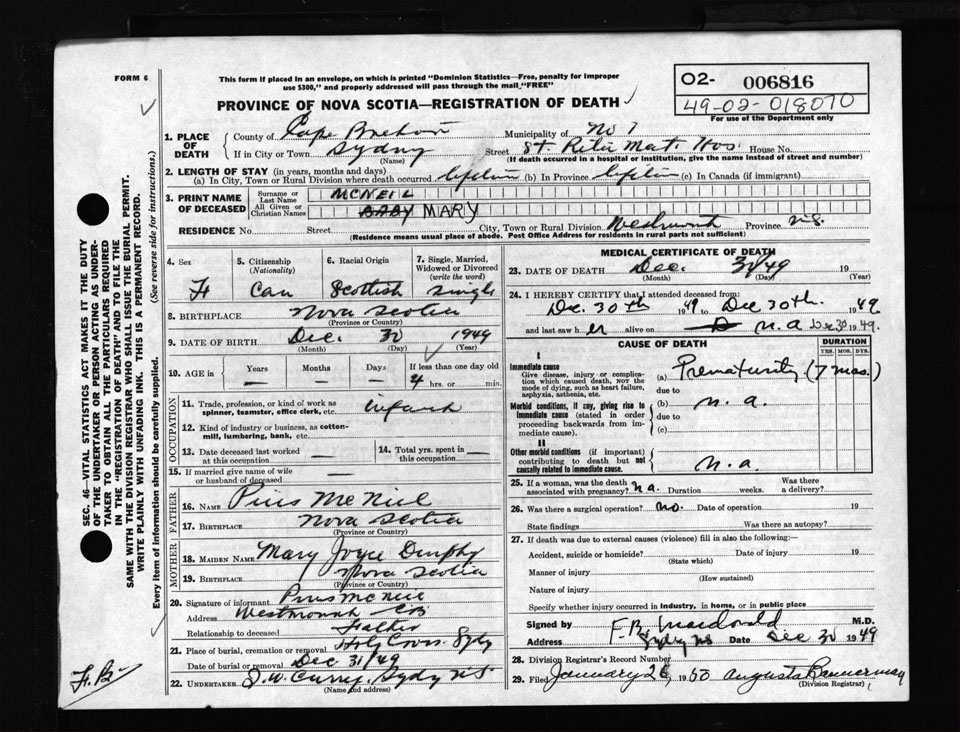 FORM 6
This form if placed in an envelope, on which is printed "Dominion Statistics—Free, penalty for improper
use $300," and properly addressed will pass through the mail "FREE"
PROVINCE OF NOVA SCOTIA—REGISTRATION OF DEATH
O2- 006816
49-02-018070
For use of the Department only
1. PLACE OF DEATH
County of Cape Breton Municipality of No 1
If in City or Town Sydney Street St. Rita Mat. Hos. House No.
(Name) (If death occurred in a hospital or institution, give the name instead of street and number)
2. LENGTH OF STAY (in years, months and days)
(a) In City, Town or Rural Division where death occurred lifetime (b) In Province lifetime (c) In Canada (if immigrant)
3. PRINT NAME OF DECEASED
Surname or Last Name MCNEIL
All Given or Christian Names BABY MARY
RESIDENCE No. Street City, Town or Rural Division Westmount Province N.S.
(Residence means usual place of abode. Post Office Address for residents in rural parts not sufficient)
4. Sex 5. Citizenship (Nationality) 6. Racial Origin 7. Single, Married, Widowed or Divorced (write the word)
F Can Scottish Single
8. BIRTHPLACE Nova Scotia
(Province or Country)
9. DATE OF BIRTH Dec. 30 1949
(Month) (Day) (Year)
10. AGE in Years Months Days If less than one day old
— — — 4 hrs. or min.
OCCUPATION
11. Trade, profession, or kind of work as spinner, teamster, office clerk, etc. infant
12. Kind of industry or business, as cotton-mill, lumbering, bank, etc.
13. Date deceased last worked at this occupation — 14. Total yrs. spent in this occupation —
15. If married give name of wife or husband of deceased —
FATHER
16. NAME Pius McNeil
17. BIRTHPLACE Nova Scotia
(Province or Country)
MOTHER
18. MAIDEN NAME Mary Joyce Dunphy
19. BIRTHPLACE Nova Scotia
(Province or Country)
20. Signature of informant Pius McNeil
Address Westmount CB
Relationship to deceased Father
21. Place of burial, cremation or removal Holy Cross Sydy
Date of burial or removal Dec 31/49
22. UNDERTAKER S.W. Curry, Sydy NS
(Name and address)
MEDICAL CERTIFICATE OF DEATH
23. DATE OF DEATH Dec. 31/49 19
(Month) (Day) (Year)
24. I HEREBY CERTIFY that I attended deceased from:
Dec. 30th 1949 to Dec 30th. 1949
and last saw her alive on n.a Dec 30 1949.
CAUSE OF DEATH DURATION
YRS. MOS. DYS.
I
Immediate cause
Give disease, injury or complication which caused death, not the mode of dying, such as heart failure, asphyxia, asthenia, etc.
(a) Prematurity (7 mos.)
due to
Morbid conditions, if any, giving rise to immediate cause (stated in order proceeding backwards from immediate cause).
(b) n.a.
due to
(c)
II
Other morbid conditions (if important) contributing to death but not causally related to immediate cause.
n.a.
25. If a woman, was the death associated with pregnancy? n.a. Duration weeks. Was there a delivery?
26. Was there a surgical operation? no. Date of operation 19
State findings Was there an autopsy?
27. If death was due to external causes (violence) fill in also the following:—
Accident, suicide or homicide? Date of injury 19
(State which)
Manner of injury
(How sustained)
Nature of injury
Specify whether injury occurred in industry, in home, or in public place
Signed by F.B. Macdonald M.D.
Address Sydny NS Date Dec 30 1949
28. Division Registrar's Record Number
29. Filed January 26, 1950 Augusta Bannerman
(Division Registrar)
SEC. 46—VITAL STATISTICS ACT MAKES IT THE DUTY
OF THE UNDERTAKER OR PERSON ACTING AS UNDER-
TAKER TO OBTAIN ALL THE PARTICULARS REQUIRED
IN THE "REGISTRATION OF DEATH" AND TO FILE THE
SAME WITH THE DIVISION REGISTRAR WHO SHALL ISSUE THE BURIAL PERMIT.
WRITE PLAINLY WITH UNFADING INK. THIS IS A PERMANENT RECORD.
Every item of information should be carefully supplied. (See reverse side for instructions.)